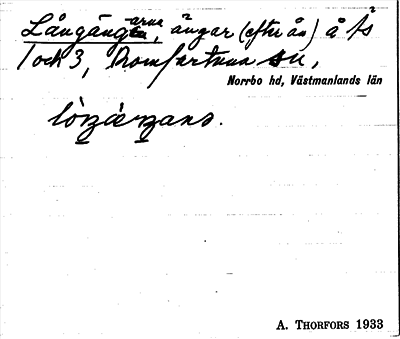 Långängarna, ängar (efter ån) å fs
1 och 3, Romfartuna sn,
Norrbo hd, Västmanlands län
A. THORFORS 1933